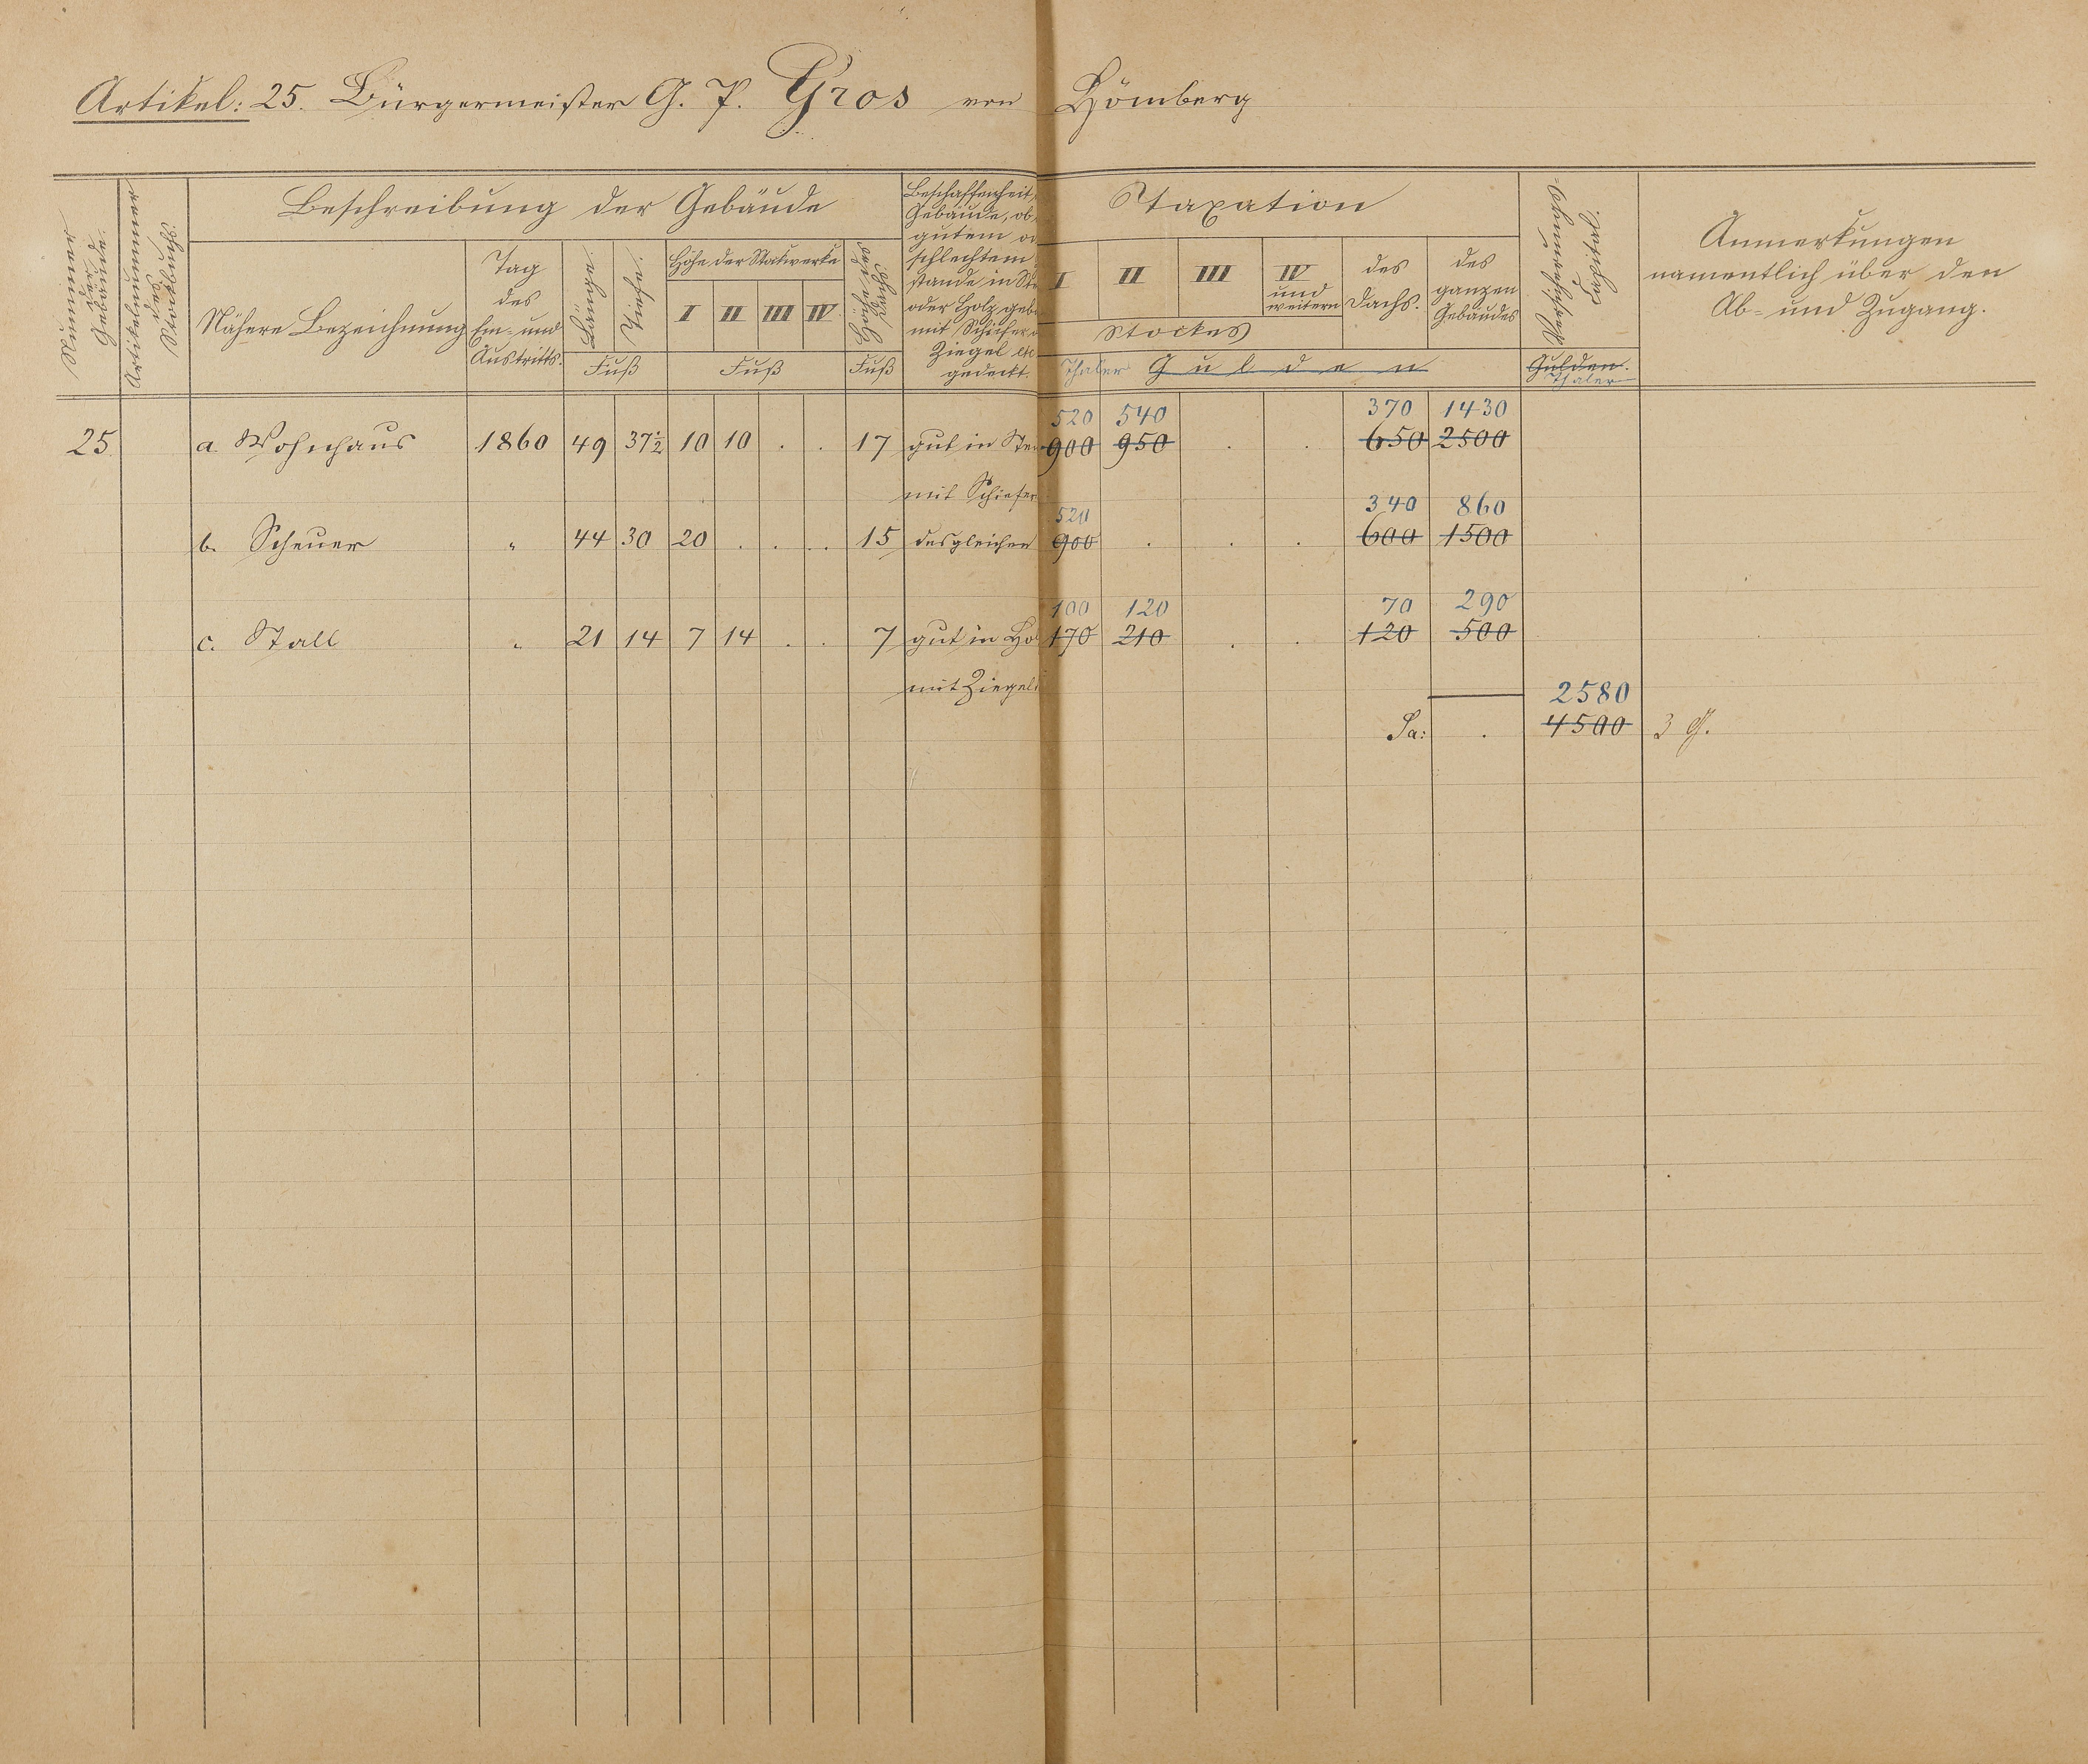 Artikel: 25. Bürgermeister G. P. Gros von Hömberg
Nummer der Gebäude.
Artikelnummer des Stockbuchs
Beschreibung der Gebäude
Nähere Bezeichnung
Tag des Ein- und Austritts.
Länge
Tiefe.
Fuß
Höhe der Stokwerke
I II III IV
Fuß
Höhe des Dachs
Fuß
Beschaffenheit,
Gebäude, ob
gutem od
schlechtem
stande in Ste
oder Holz geb
mit Schiefer o
Ziegel etc
gedeckt.
Taxation
I II III IV und weitern
Stockes
des Dachs.
des ganzen Gebäudes
Thaler Gulden
Versicherungs-
Capital.
Gulden.
Thaler
Anmerkungen
namentlich über den
Ab- und Zugang.
520 540 370 1430
25. a. Wohnhaus 1860 49 37½ 10 10 . . 17 gut in Stei 900 950 . . 650 2500
mit Schiefer
520 340 860
b. Scheuer " 44 30 20 . . . 15 desgleichen 900 . . . 600 1500
100 120 70 290
c. Stall " 21 14 7 14 . . 7 gut in Hol 170 210 . . 120 500
mit Ziegel
2580
Sa: . 4500